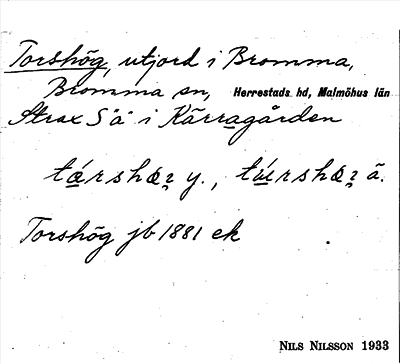 Torshög, utjord i Bromma,
Bromma sn, Herrestads hd, Malmöhus län
Strax S ä i Kärragården
Torshög jb 1881 ek
NILS NILSSON 1933